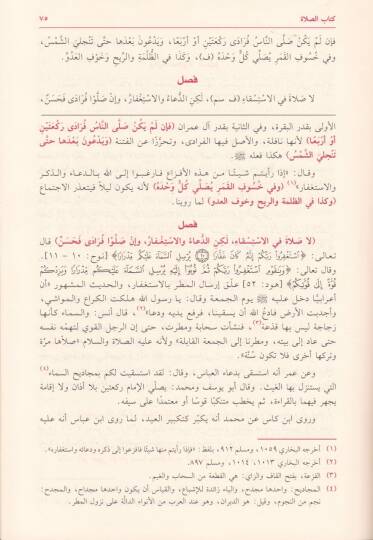 كتاب الصلاة
٧٥
فإن لَمْ يَكُنْ صَلَّى النَّاسُ فُرَادَى رَكْعَتَيْنِ أَوْ أَرْبَعًا، وَيَدْعُونَ بَعْدَهَا حتى تَنْجَلِيَ الشَّمْسُ،
وفي خُسوفِ القَمَرِ يُصَلِّي كُلٌّ وَحْدَهُ (ف)، وكَذَا في الظُّلْمَةِ والرِّيحِ وخَوْفِ العَدُوِّ.
فصل
لا صَلاةَ في الاسْتِسْقَاءِ (ف سم)، لَكِنِ الدُّعاءُ والاسْتِغْفارُ، وإنْ صَلَّوْا فُرَادَى فَحَسَنٌ،
الأولى بقدر البقرة، وفي الثانية بقدر آل عمران (فإن لَمْ يَكُنْ صَلَّى النَّاسُ فُرَادَى رَكْعَتَيْنِ
أَوْ أَرْبَعًا) لأنها نافلة، والأصل فيها الفرادى، وتحرُّزًا عن الفتنة (وَيَدْعُونَ بَعْدَهَا حتَّى
تَنْجَلِيَ الشَّمْسُ) هكذا فعله ﷺ.
وقال: «إذا رأيتم شيئًا من هذه الأفزاع فارغبوا إلى الله بالدعاء والذكر
والاستغفار»(١) (وفي خُسوفِ القَمَرِ يُصَلِّي كُلٌّ وَحْدَهُ) لأنه يكون ليلاً فيتعذر الاجتماع
(وكذا في الظلمة والريح وخوف العدو) لما روينا.
فصل
(لا صَلاةَ في الاسْتِسْقَاءِ، لَكِنِ الدُّعَاءُ والاسْتِغْفَارُ، وإنْ صَلَّوْا فُرَادَى فَحَسَنٌ) قال
تعالى: ﴿اسْتَغْفِرُوا رَبَّكُمْ إِنَّهُ كَانَ غَفَّارًا ۝ يُرْسِلِ السَّمَاءَ عَلَيْكُمْ مِدْرَارًا﴾ [نوح: ١٠ - ١١].
وقال تعالى: ﴿وَيَا قَوْمِ اسْتَغْفِرُوا رَبَّكُمْ ثُمَّ تُوبُوا إِلَيْهِ يُرْسِلِ السَّمَاءَ عَلَيْكُمْ مِدْرَارًا وَيَزِدْكُمْ
قُوَّةً إِلَى قُوَّتِكُمْ﴾ [هود: ٥٢] علق إرسال المطر بالاستغفار، والحديث المشهور «أن
أعرابيًّا دخل عليه ﷺ يوم الجمعة وقال: يا رسول الله هلكت الكراع والمواشي،
وأجدبت الأرض فادعُ الله أن يسقينا، فرفع يديه ودعا»(٢)، قال أنس: والسماء كأنها
زجاجة ليس بها قذعة(٣)، فنشأت سحابة ومطرت، حتى إن الرجل القوي لتهمّه نفسه
حتى عاد إلى بيته، ومطرنا إلى الجمعة القابلة» ولأنه عليه الصلاة والسلام «صلاها مرّة
وتركها أخرى فلا تكون سنّة».
وعن عمر أنه استسقى بدعاء العباس، وقال: لقد استسقيت لكم بمجاديح السماء(٤)
التي يستنزل بها الغيث. وقال أبو يوسف ومحمد: يصلّي الإمام ركعتين بلا أذان ولا إقامة
يجهر فيهما بالقراءة، ثم يخطب متنكبًا قوسًا أو معتمدًا على سيفه.
وروى ابن كاس عن محمد أنه يكبّر كتكبير العيد، لما روى ابن عباس أنه عليه
(١) أخرجه البخاري ١٠٥٩، ومسلم ٩١٢، بلفظ: «فإذا رأيتم منها شيئًا فافزعوا إلى ذكره ودعائه واستغفاره».
(٢) أخرجه البخاري ١٠١٣، ١٠١٤، ومسلم ٨٩٧.
(٣) القزعة، بفتح القاف والزاي: هي القطعة من السحاب والغيم.
(٤) المجاديح: واحدها مجدح، والياء زائدة للإشباع، والقياس أن يكون واحدها مجداح، والمجدح:
نجم من النجوم، وقيل: هو الدبران، وهو عند العرب من الأنواء الدالّة على نزول المطر.